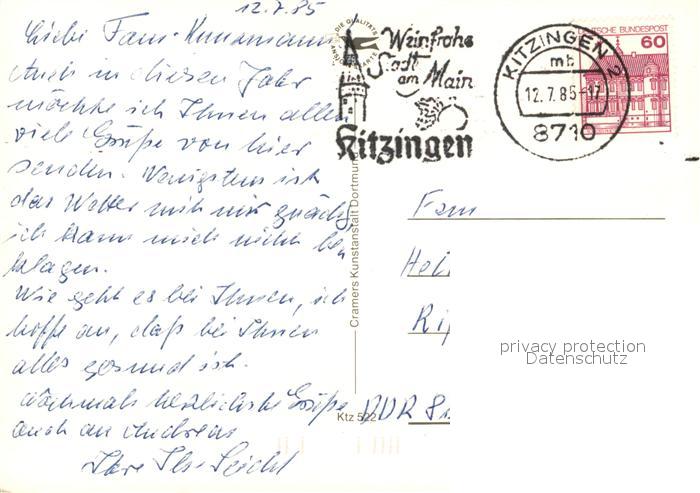 12.7.85
Liebe Fam. Kunzmann
Auch in diesem Jahr
möchte ich Ihnen allen
viele Grüße von hier
senden. Wenigstens ist
das Wetter mit mir gnädig,
ich kann mich nicht be
klagen.
Wie geht es bei Ihnen, ich
hoffe an, daß bei Ihnen
alles gesund ist.
Nochmals herzlichste Grüße
auch an Andreas
Ihre Ilse Seidel
Cramers Kunstanstalt Dortmund
Ktz 522
Weinfrohe
Stadt
am Main
Kitzingen
KITZINGEN 2
mb
12.7.85-17
8710
DEUTSCHE BUNDESPOST
60
Fam
Hel
Ri
DDR 8
privacy protection
Datenschutz